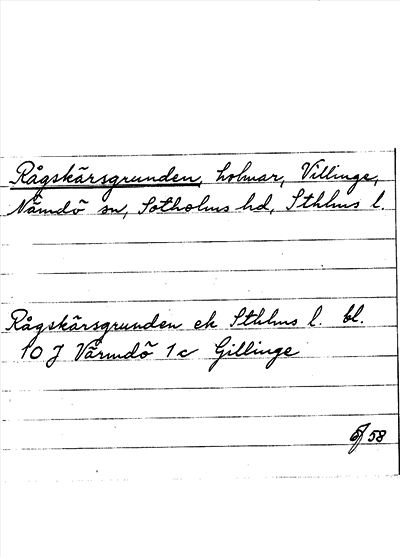 Rågskärsgrunden, holmar, Villinge,
Nämdö sn, Sotholms hd, Sthlms l.
Rågskärsgrunden ek Sthlms l. bl.
10 J Värmdö 1c Gillinge
58